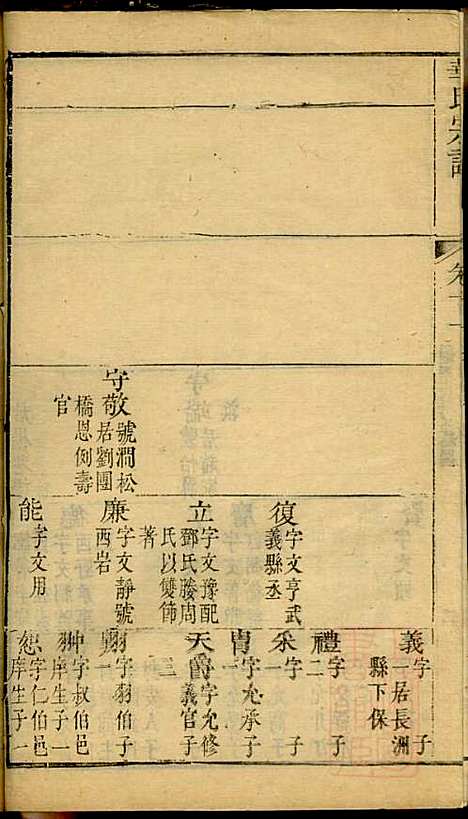 華氏宗譜
卷十一
守敬 號澗松
居劉團
橋恩例壽
官
復 字文亨武
義縣丞
立 字文豫配
鄧氏勝周
氏以雙節
著
廉 字文靜號
西岩
能 字文用
義 字 子
一居長洲
縣下保
禮 字 子
二
采 字 子
一
胄 字允承子
一
天爵 字允修
義官子
三
羽 字羽伯子
翀 字叔伯邑
庠生子一
恕 字仁伯邑
庠生子一